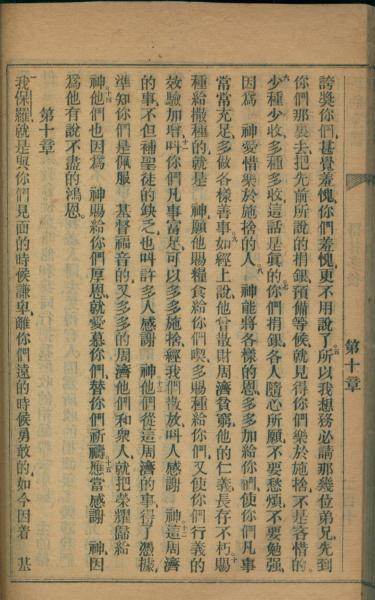 第十章
誇獎你們、甚覺羞愧、你們羞愧、更不用說了、所以我想務必請那幾位弟兄、先到
你們那裏去、把先前所說的捐銀預備等候、就見得你們樂於施捨、不是吝惜的、
少種少收、多種多收、這話是眞的、你們捐銀、各人隨心所願、不要愁煩、不要勉强、
因爲 神愛惜樂於施捨的人、 神能將各樣的恩、多多加給你們、使你們凡事
常常充足、多做各樣善事、如經上說、他曾散財周濟貧窮、他的仁義長存不朽、賜
種給撒種的、就是 神、願他賜糧食給你們喫、多賜種給你們、又使你們行義的
效驗加增、叫你們凡事富足、可以多多施捨、經我們散放、叫人感謝 神、這周濟
的事、不但補聖徒的缺乏、也叫許多人感謝 神、他們從這周濟的事、得了憑據、
準知你們是佩服 基督福音的、又多多的周濟他們和衆人、就把榮耀歸給
神、他們也因爲 神賜給你們厚恩、就愛慕你們、替你們祈禱、應當感謝 神、因
爲他有說不盡的鴻恩、
第十章
我保羅、就是與你們見面的時候謙卑、離你們遠的時候勇敢的、如今因着 基